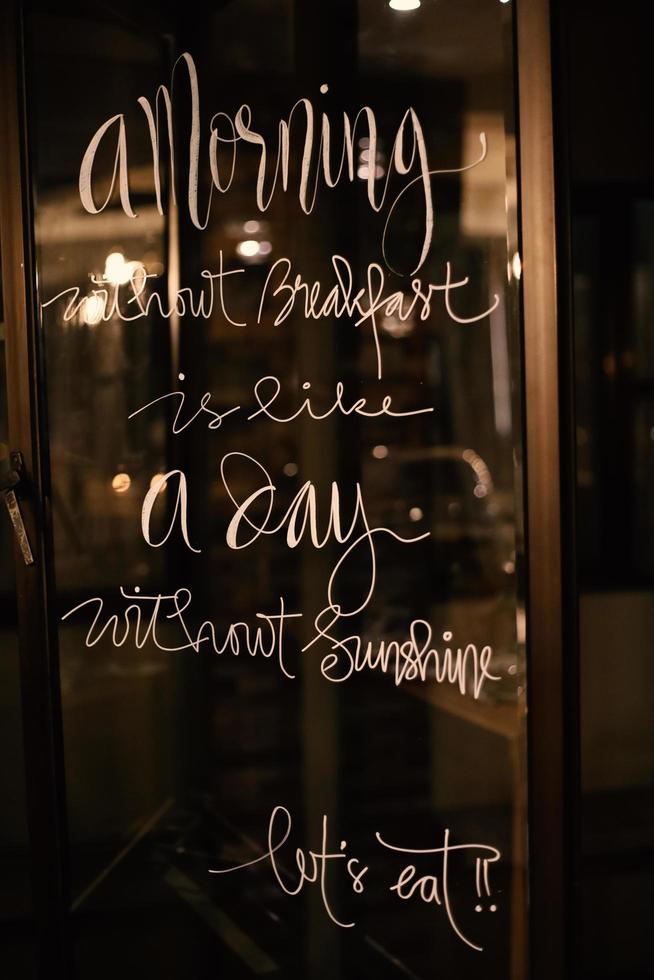 a Morning
without Breakfast
is like
a day
without Sunshine
let's eat!!